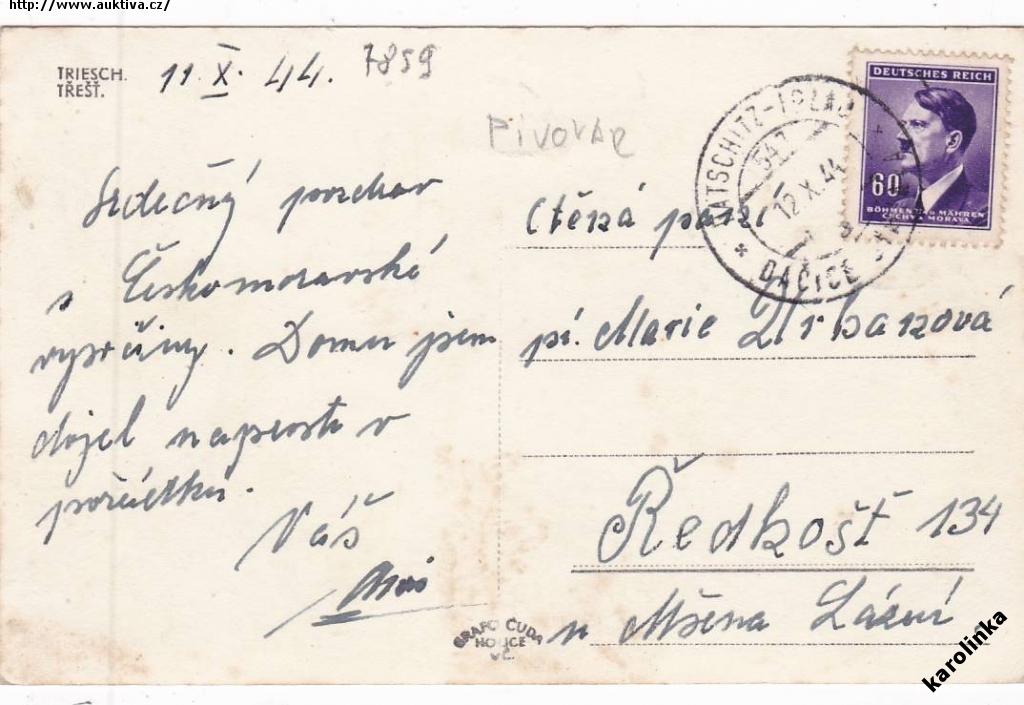 http://www.auktiva.cz/
TRIESCH.
TŘEŠŤ.
11. X. 44.
7859
PIVOVAR
Srdečný pozdrav
s Českomoravské
vysočiny. Domu jsem
dojel naprosto v
pořádku.
Váš
DEUTSCHES REICH
60
BÖHMEN UND MÄHREN
ČECHY A MORAVA
DATSCHITZ-IGLAU
547
12.X.44
DAČICE
Ctěná paní
pí. Marie Urbanová
Ředhošť 134
u Mšena Lázní.
GRAFO ČUDA
HOLICE
V.Č.
karolinka